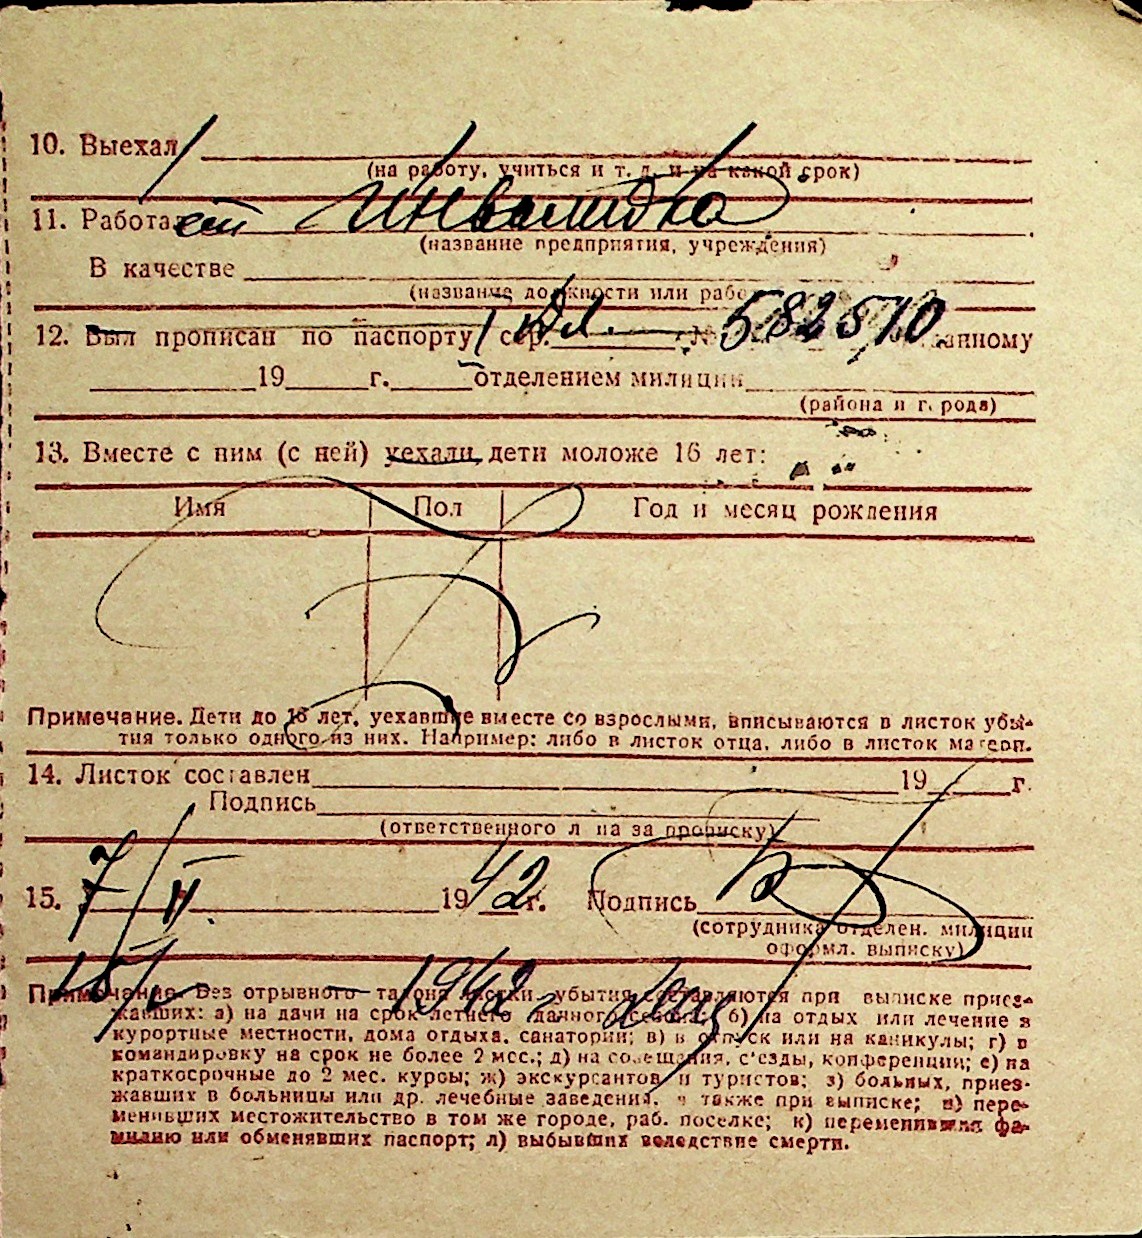 10. Выехал
(на работу, учиться и т. д. и на какой срок)
11. Работает Инвалидка
(название предприятия, учреждения)
В качестве
(название должности или рабо
12. Был прописан по паспорту сер. № 582510. данному
19 г. отделением милиции
(района и города)
13. Вместе с ним (с ней) уехали дети моложе 16 лет:
Имя Пол Год и месяц рождения
Примечание. Дети до 16 лет, уехавшие вместе со взрослыми, вписываются в листок убы-
тия только одного из них. Например: либо в листок отца, либо в листок матери.
14. Листок составлен 19 г.
Подпись
(ответственного лица за прописку)
15. 7/II 1942 г. Подпись
(сотрудника отделен. милиции
оформл. выписку)
1942
Примечание. Без отрывного талона листки убытия составляются при выписке приез-
жавших: а) на дачи на срок летнего дачного сезона; б) на отдых или лечение в
курортные местности, дома отдыха, санатории; в) в отпуск или на каникулы; г) в
командировку на срок не более 2 мес.; д) на совещания, с'езды, конференции; е) на
краткосрочные до 2 мес. курсы; ж) экскурсантов и туристов; з) больных, приез-
жавших в больницы или др. лечебные заведения, а также при выписке; и) пере-
менивших местожительство в том же городе, раб. поселке; к) переменивших фа-
милию или обменявших паспорт; л) выбывших вследствие смерти.